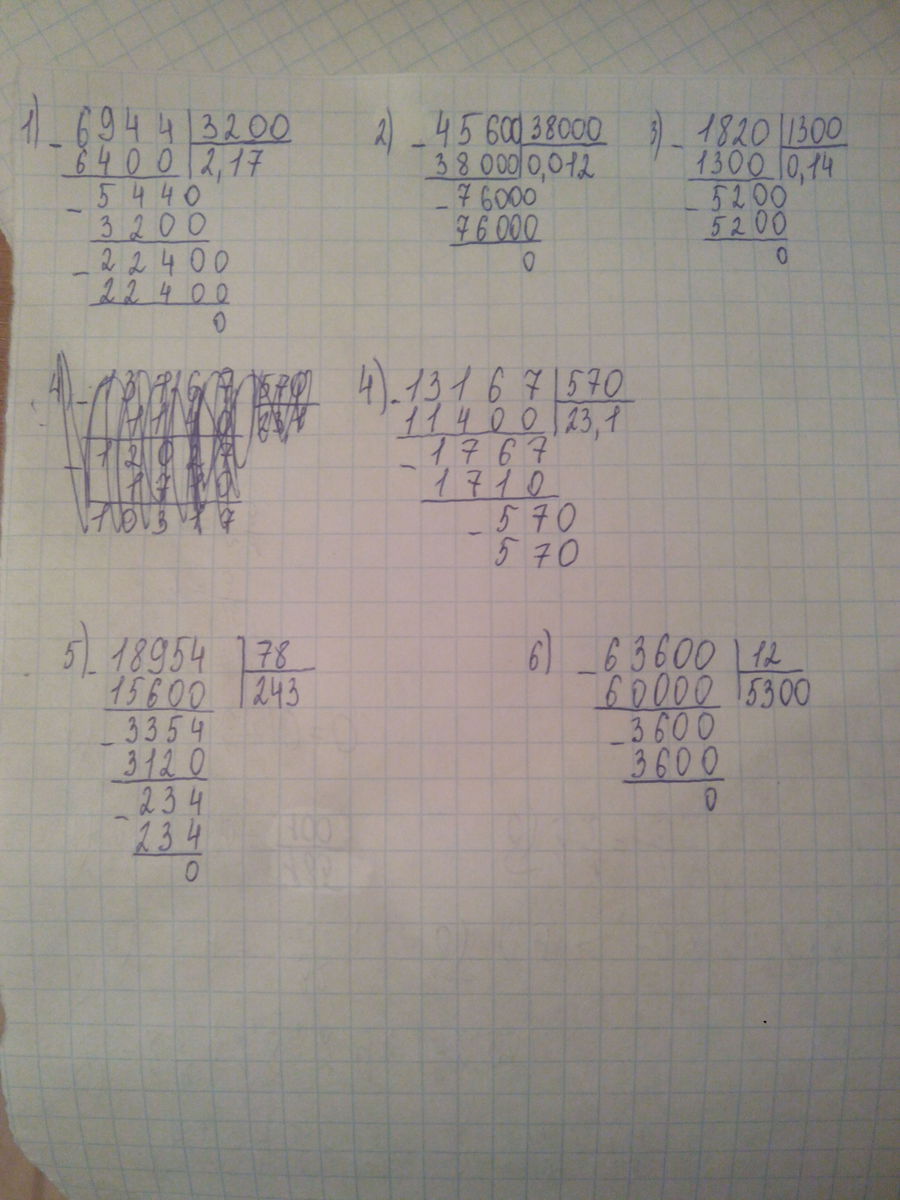 1) - 6944 | 3200
6400 | 2,17
- 5440
3200
- 22400
22400
0
2) - 45600 | 38000
38000 | 0,012
- 76000
76000
0
3) - 1820 | 1300
1300 | 0,14
- 5200
5200
0
4) - 13167 | 570
11400 | 23,1
- 1767
1710
- 570
570
5) - 18954 | 78
15600 | 243
- 3354
3120
- 234
234
0
6) - 63600 | 12
60000 | 5300
- 3600
3600
0